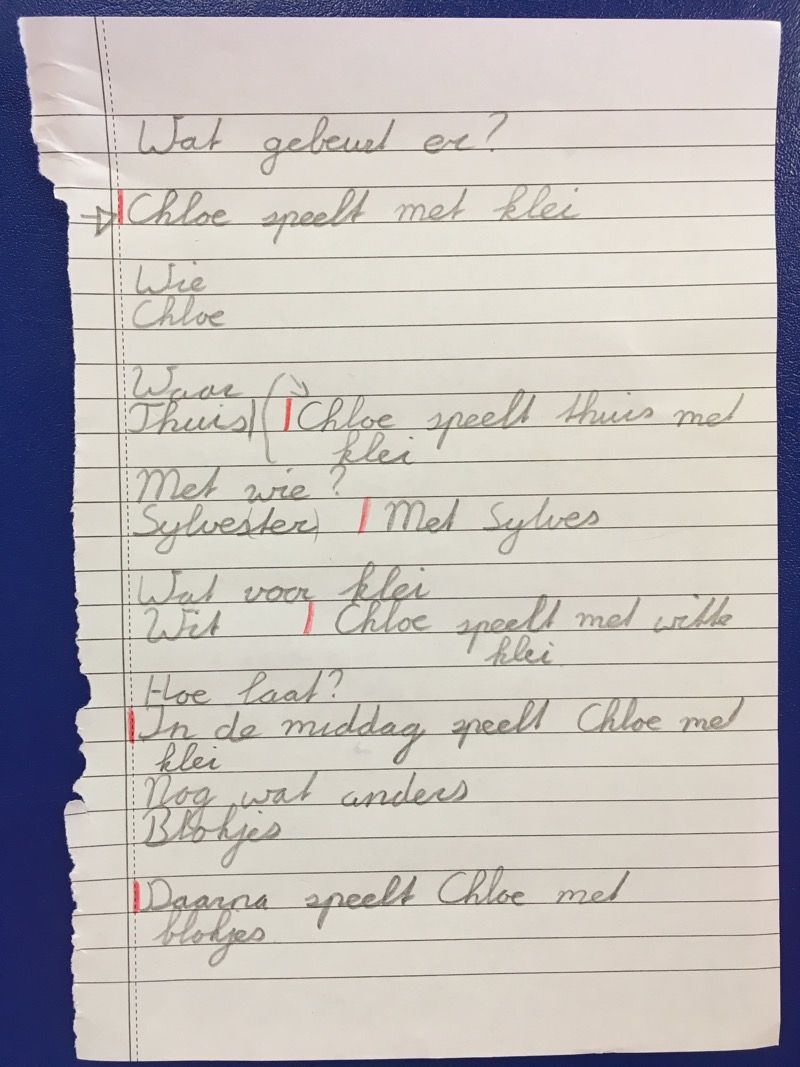 Wat gebeurt er?
Chloe speelt met klei
Wie
Chloe
Waar
Thuis) ( Chloe speelt thuis met
klei
Met wie?
Sylves(ter) Met Sylves
Wat voor klei
Wit Chloe speelt met witte
klei
Hoe laat?
In de middag speelt Chloe met
klei
Nog wat anders
Blokjes
Daarna speelt Chloe met
blokjes